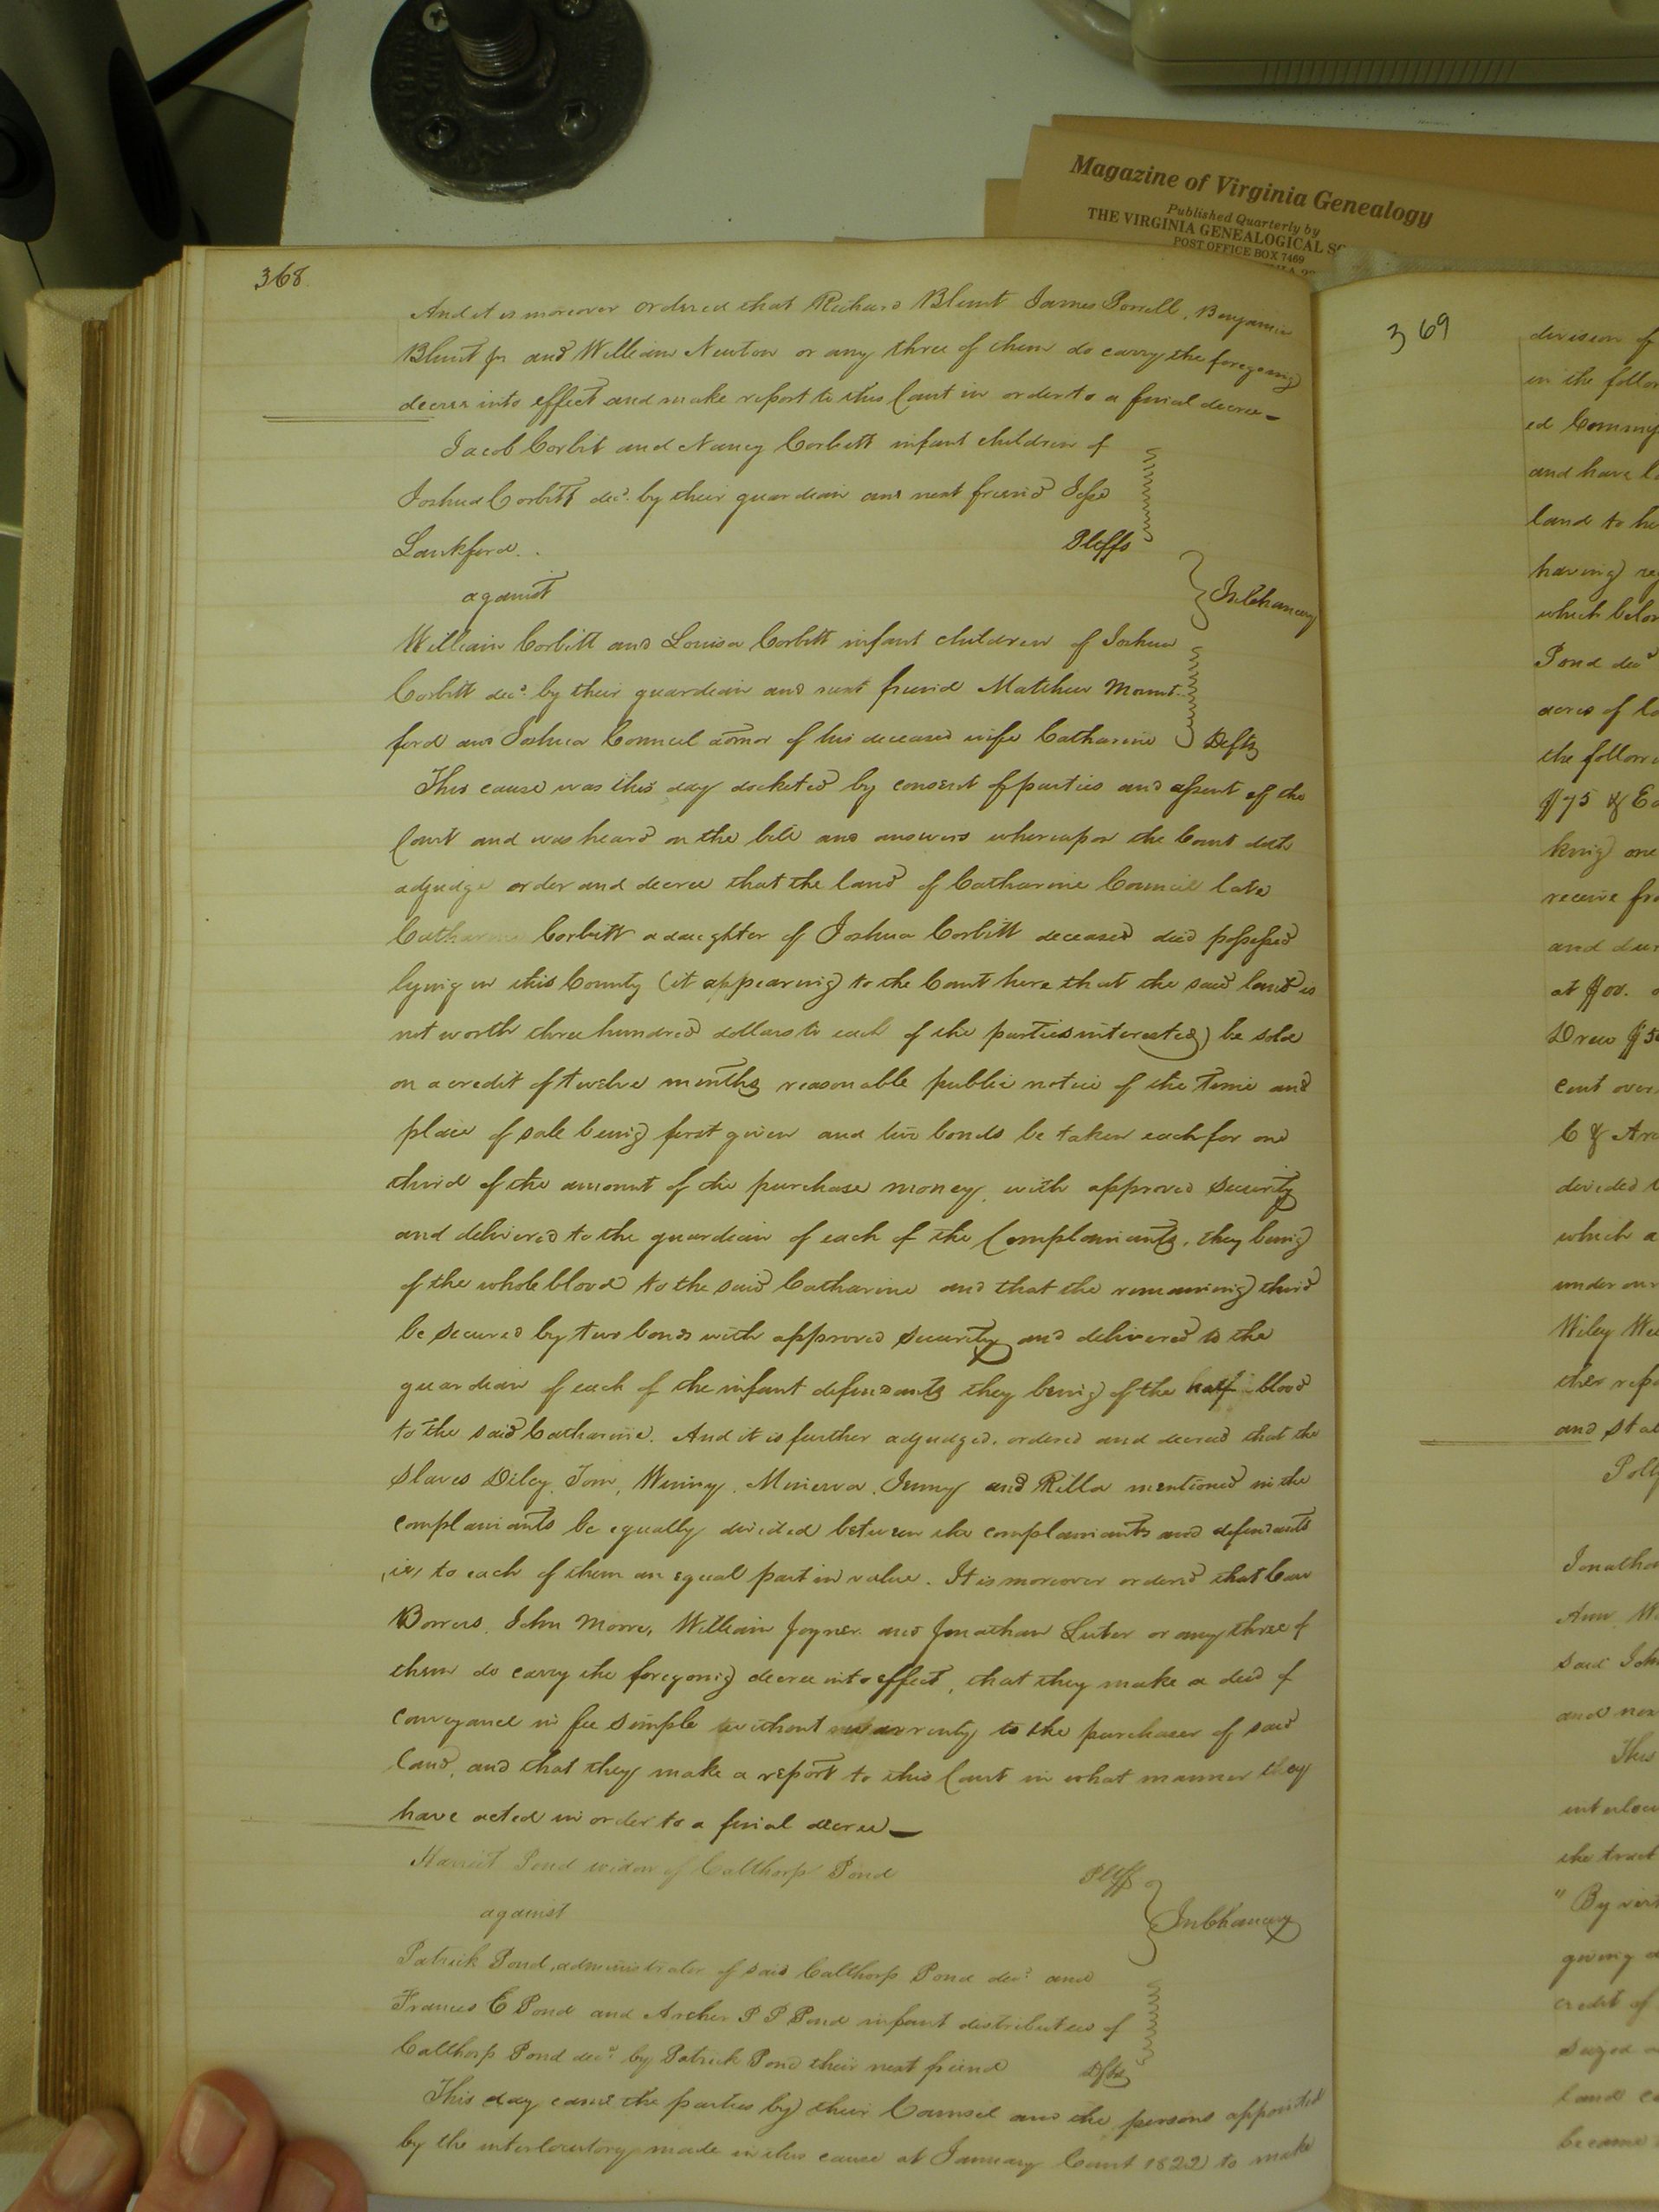 Magazine of Virginia Genealogy
Published Quarterly by
THE VIRGINIA GENEALOGICAL
POST OFFICE BOX 7469
368
And it is moreover ordered that Richard Blunt James Powell, Benjamin
Blunt Jr and William Newton or any three of them do carry the foregoing
decree into effect and make report to this Court in order to a final decree
Jacob Corbit and Nancy Corbitt infant children of
Joshua Corbitt decd. by their guardian and next friend Jesse
Lankford.
Pltffs
against
In Chancery
William Corbitt and Louisa Corbitt infant children of Joshua
Corbitt decd. by their guardian and next friend Matthew Mount-
ford and Joshua Council admor of his deceased wife Catharine Defts
This cause was this day docketed by consent of parties and assent of the
Court and was heard on the bill and answers whereupon the Court doth
adjudge order and decree that the land of Catharine Council late
Catharine Corbitt a daughter of Joshua Corbitt deceased died possessed
lying in this County (it appearing to the Court here that the said land is
not worth three hundred dollars to each of the parties interested) be sold
on a credit of twelve months reasonable public notice of the time and
place of sale being first given and two bonds be taken each for one
third of the amount of the purchase money, with approved security
and delivered to the guardian of each of the Complainants, they being
of the whole blood to the said Catharine and that the remaining third
be secured by two bonds with approved security and delivered to the
guardian of each of the infant defendants they being of the half blood
to the said Catharine. And it is further adjudged, ordered and decreed that the
Slaves Dilcy, Tom, Winny, Minerva, Jenny and Rilla mentioned in the
complainants be equally divided between the complainants and defendants
ie, to each of them an equal part in value. It is moreover ordered that
John Moore, William Joyner and Jonathan Luter or any three of
them do carry the foregoing decree into effect, that they make a deed of
conveyance in fee simple without warrenty to the purchaser of said
land, and that they make a report to this Court in what manner they
have acted in order to a final decree
Harriet Pond widow of Calthorp Pond Pltff
against
In Chancery
Patrick Pond, administrator of said Calthorp Pond decd. and
Frances E Pond and Archer P P Pond infant distributees of
Calthorp Pond decd. by Patrick Pond their next friend Defts
This day came the parties by their Counsel and the persons appointed
by the interlocutory made in this cause at January Court 1822 to make
369
division of
in the
ed
and have
land to
having
which
Pond decd
acres of
the
$75 &
king one
receive
and
at
Drew
cent over
C &
divided
which a
under our
Wiley
and
said
and
This
the tract
" By
giving
credit of
land
became